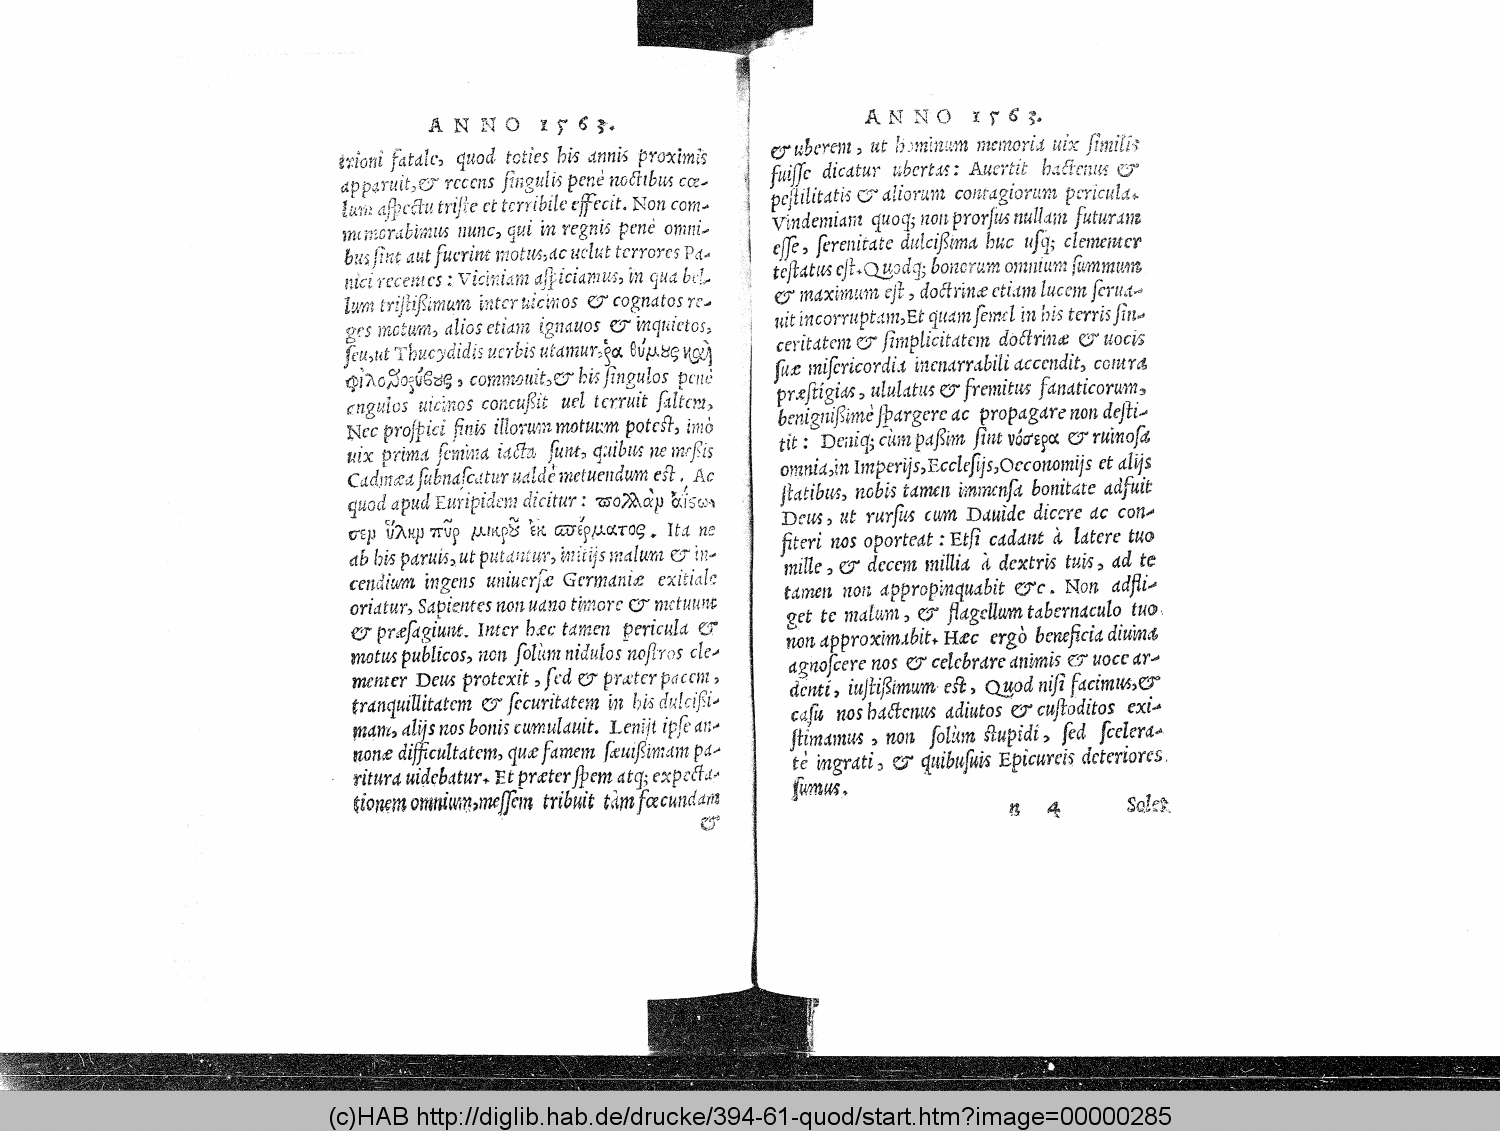 ANNO 1563.
trioni fatale, quod toties his annis proximis
apparuit, & recens singulis penè noctibus cœ-
lum aspectu triste et terribile effecit. Non com-
memorabimus nunc, qui in regnis penè omni-
bus sint aut fuerint motus, ac uelut terrores Pa-
nici recentes: Viciniam aspiciamus, in qua bel-
lum tristißimum inter uicinos & cognatos re-
ges motum, alios etiam ignauos & inquietos,
seu, ut Thucydidis uerbis utamur, θύμους
commouit, & his singulos penè
angulos uicinos concußit uel terruit saltem,
Nec prospici finis illorum motuum potest, imò
uix prima semina iacta sunt, quibus ne meßis
Cadmæa subnascatur ualdè metuendum est. Ac
quod apud Euripidem dicitur: πολλὰν
ὕλαν πῦρ μικροῦ ἐκ σπέρματος. Ita ne
ab his paruis, ut putantur, initijs malum & in-
cendium ingens uniuersæ Germaniæ exitiale
oriatur, Sapientes non uano timore & metuunt
& præsagiunt. Inter hæc tamen pericula &
motus publicos, non solùm nidulos nostros cle-
menter Deus protexit, sed & præter pacem,
tranquillitatem & securitatem in his dulcißi-
mam, alijs nos bonis cumulauit. Lenijt ipse an-
nonæ difficultatem, quæ famem sæuißimam pa-
ritura uidebatur. Et præter spem atq; expecta-
tionem omnium, messem tribuit tàm fœcundam
&
ANNO 1563.
& uberem, ut hominum memoria uix similis
fuisse dicatur ubertas: Auertit hactenus &
pestilitatis & aliorum contagiorum pericula.
Vindemiam quoq; non prorsus nullam futuram
esse, serenitate dulcißima huc usq; clementer
testatus est. Quodq; bonorum omnium summum
& maximum est, doctrinæ etiam lucem serua-
uit incorruptam, Et quam semel in his terris sin-
ceritatem & simplicitatem doctrinæ & uocis
suæ misericordia inenarrabili accendit, contra
præstigias, ululatus & fremitus fanaticorum,
benignißimè spargere ac propagare non desti-
tit: Deniq; cùm paßim sint νόσερα & ruinosa
omnia, in Imperijs, Ecclesijs, Oeconomijs et alijs
statibus, nobis tamen immensa bonitate adfuit
Deus, ut rursus cum Dauide dicere ac con-
fiteri nos oporteat: Etsi cadant à latere tuo
mille, & decem millia à dextris tuis, ad te
tamen non appropinquabit &c. Non adfli-
get te malum, & flagellum tabernaculo tuo
non approximabit. Hæc ergò beneficia diuina
agnoscere nos & celebrare animis & uoce ar-
denti, iustißimum est, Quod nisi facimus, &
casu nos hactenus adiutos & custoditos exi-
stimamus, non solùm stupidi, sed scelera-
tè ingrati, & quibusuis Epicureis deteriores
sumus.
n 4 Solet
(c)HAB http://diglib.hab.de/drucke/394-61-quod/start.htm?image=00000285